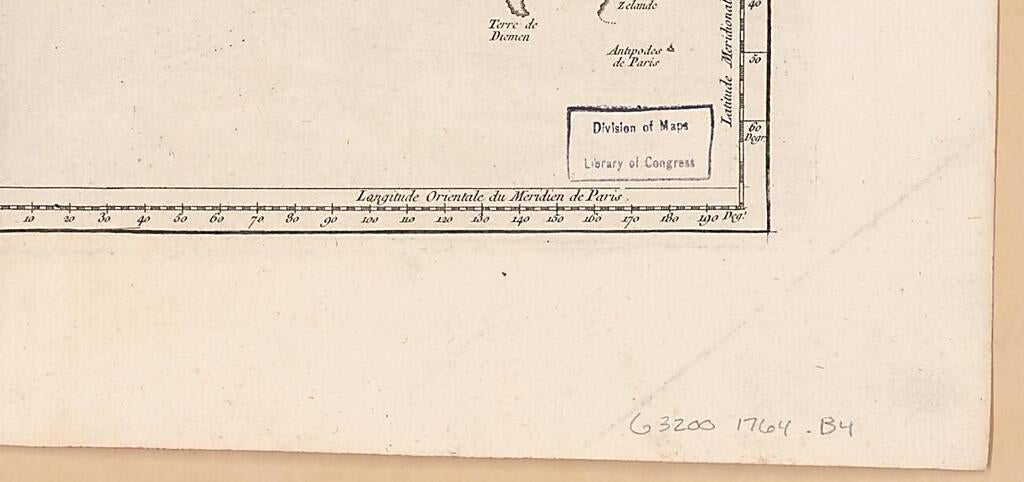 Zelande
Terre de
Diemen
Antipodes
de Paris
Latitude Meridional
40
50
60
Degr.
Division of Maps
Library of Congress
Longitude Orientale du Meridien de Paris.
10 20 30 40 50 60 70 80 90 100 110 120 130 140 150 160 170 180 190 Deg.
G3200 1764 .B4